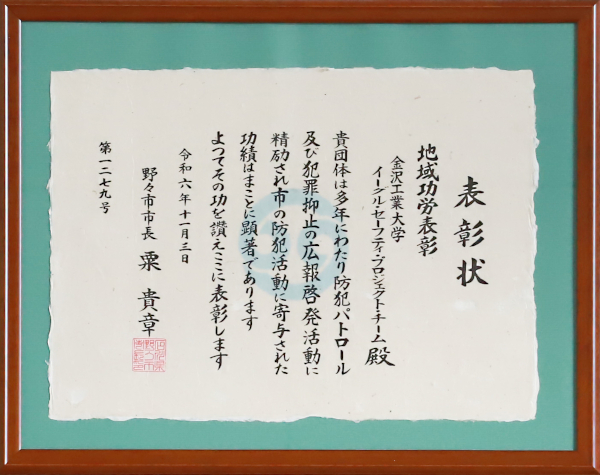 表彰状
地域功労表彰
金沢工業大学
イーグル・セーフティ・プロジェクト・チーム 殿
貴団体は多年にわたり防犯パトロール
及び犯罪抑止の広報啓発活動に
精励され市の防犯活動に寄与された
功績はまことに顕著であります
よつてその功を讃えここに表彰します
令和六年十一月三日
野々市市長 粟 貴章
第一二七九号